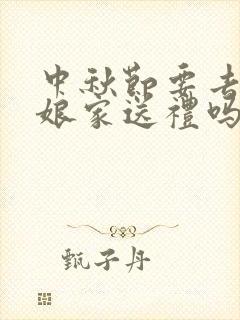 中秋節要去
娘家送禮嗎
甄子丹